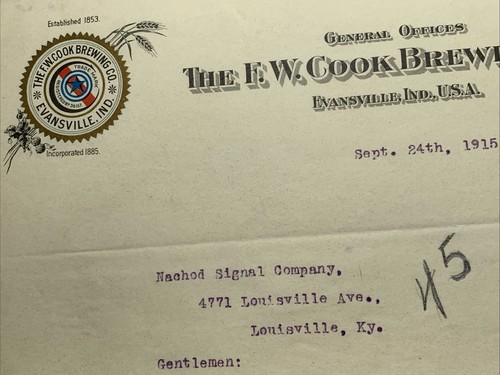 Established 1853.
THE F.W. COOK BREWING CO.
TRADE MARK
EVANSVILLE, IND.
Incorporated 1885.
GENERAL OFFICES
THE F. W. COOK BREWI
EVANSVILLE, IND., U.S.A.
Sept. 24th, 1915
45
Nachod Signal Company,
4771 Louisville Ave.,
Louisville, Ky.
Gentlemen: